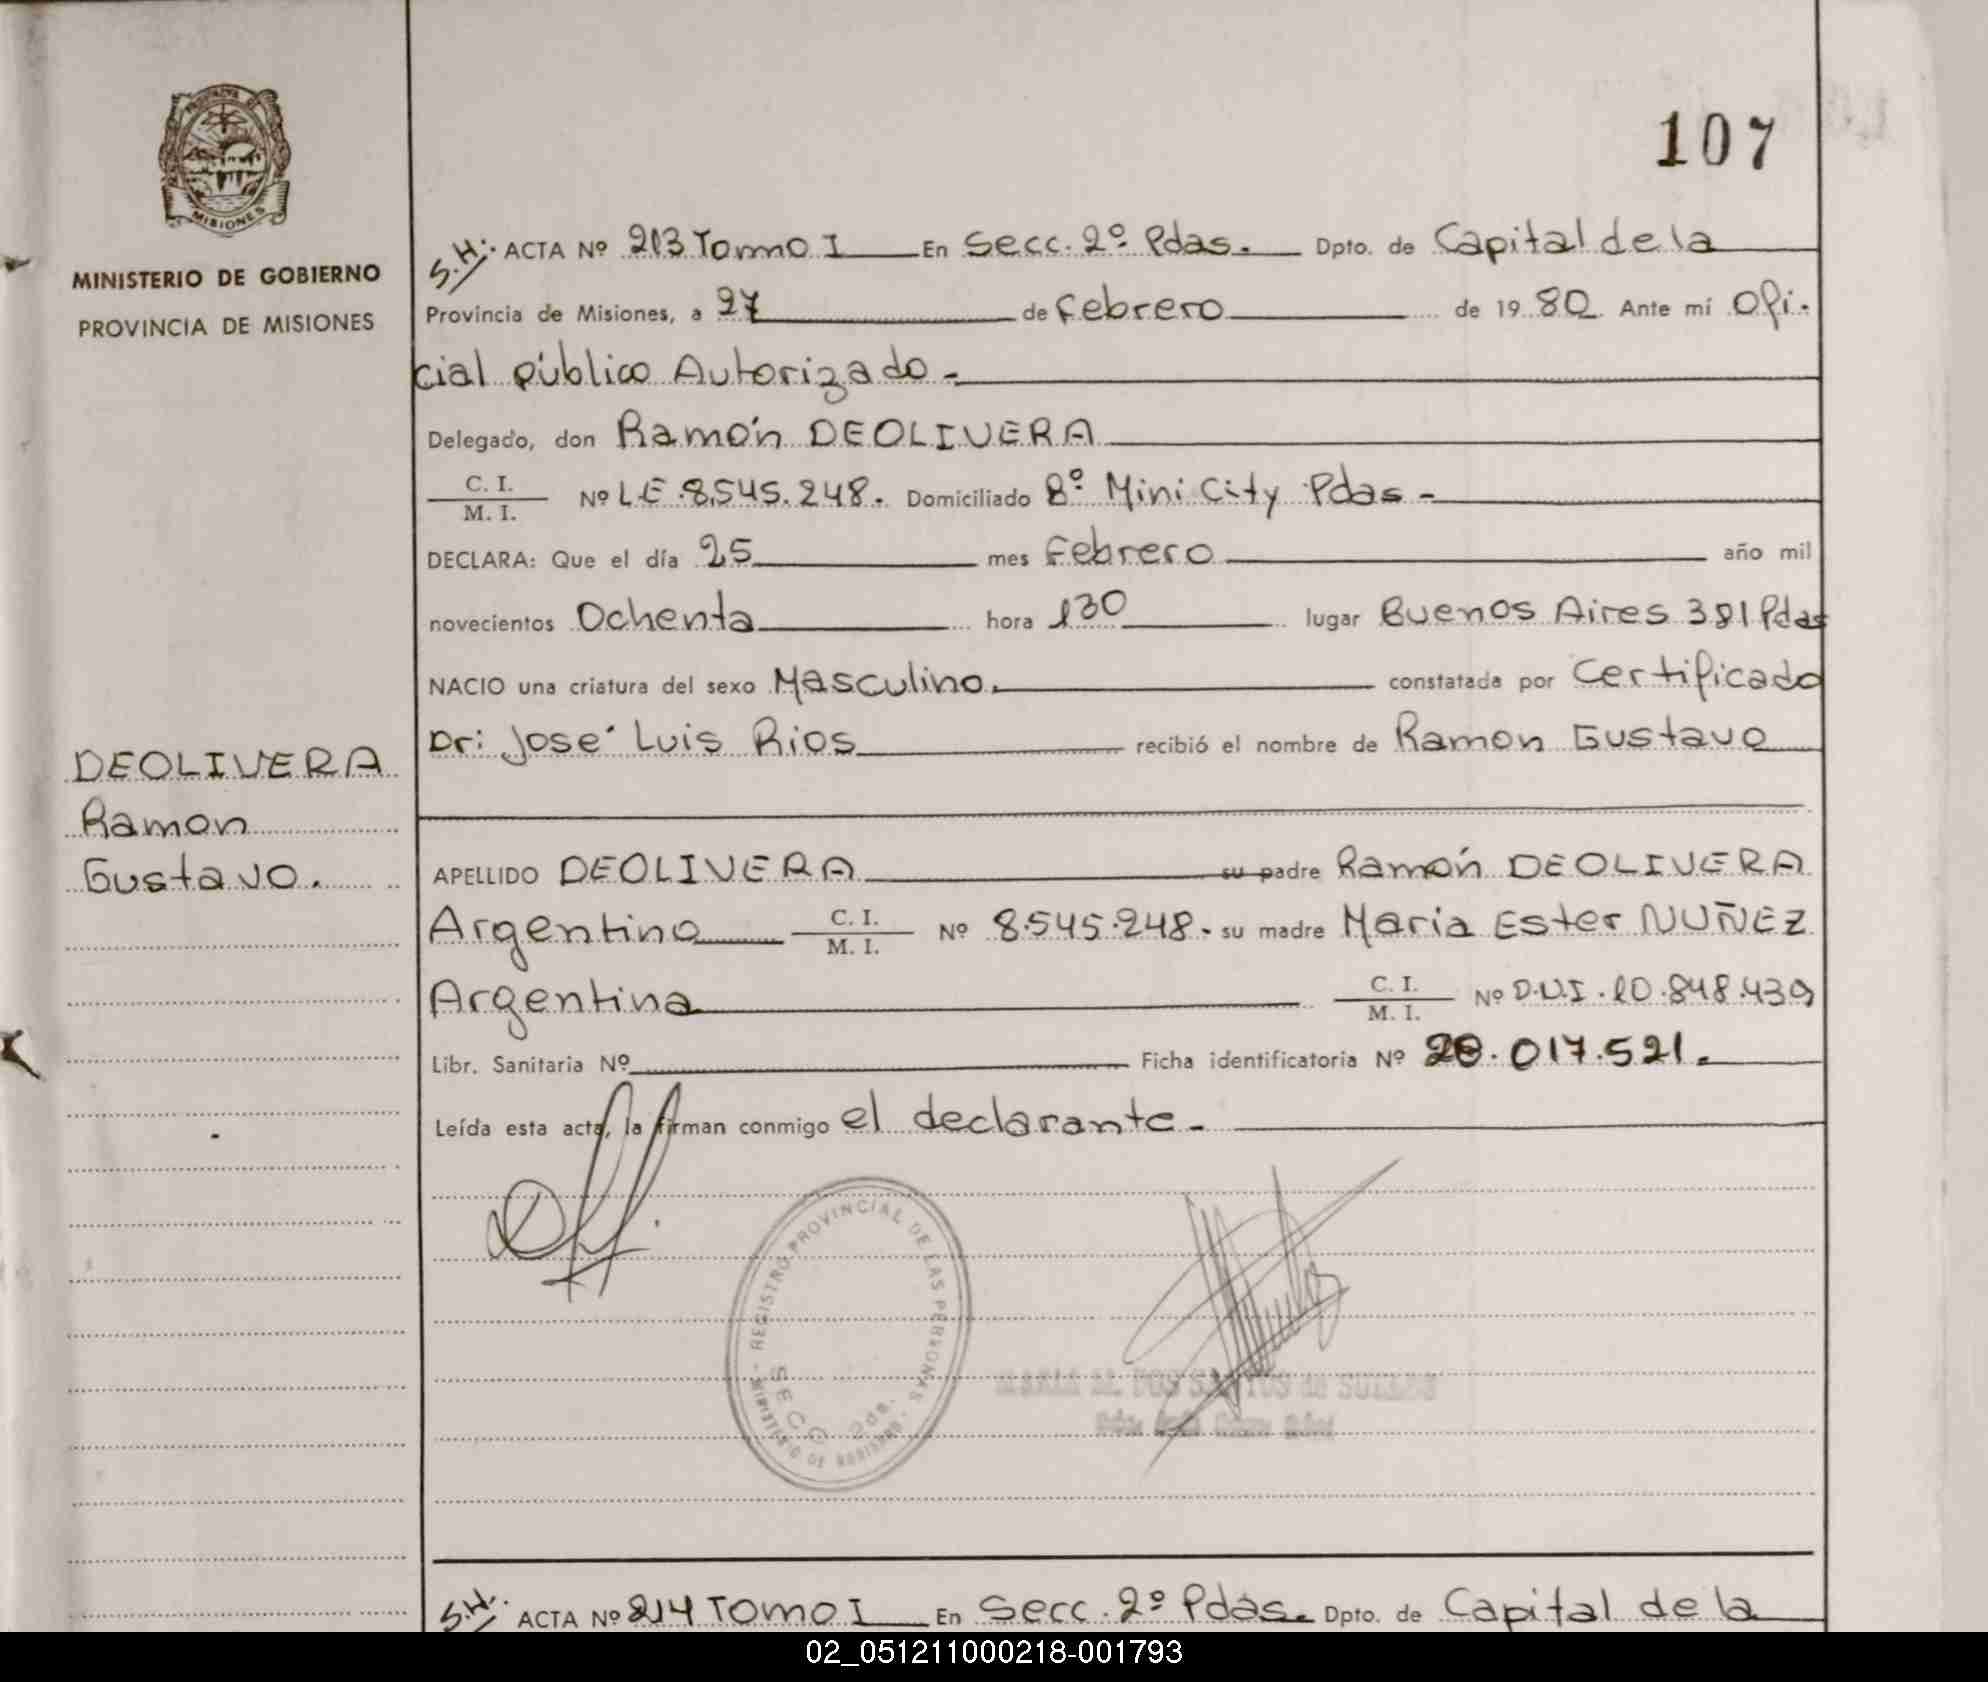 107
MINISTERIO DE GOBIERNO
PROVINCIA DE MISIONES
MISIONES
DEOLIVERA
Ramon
Gustavo.
S.H: ACTA Nº 213 Tomo I En Secc. 2º Pdas. Dpto. de Capital de la
Provincia de Misiones, a 27 de Febrero de 1980 Ante mí Ofi-
cial público Autorizado -
Delegado, don Ramón DEOLIVERA
C. I.
M. I. Nº L.E. 8.545.248. Domiciliado 8º Mini City Pdas -
DECLARA: Que el día 25 mes Febrero año mil
novecientos Ochenta hora 130 lugar Buenos Aires 381 Pdas
NACIO una criatura del sexo Masculino. constatada por Certificado
Dr: José Luis Rios recibió el nombre de Ramon Gustavo
APELLIDO DEOLIVERA su padre Ramón DEOLIVERA
Argentino C. I. M. I. Nº 8.545.248. su madre Maria Ester NUÑEZ
Argentina C. I. M. I. Nº D.N.I. 10.848.439
Libr. Sanitaria Nº Ficha identificatoria Nº 28.017.521.
Leída esta acta, la firman conmigo el declarante.
REGISTRO PROVINCIAL DE LAS PERSONAS
MINISTERIO DE GOBIERNO
SECC 2da.
S.H. ACTA Nº 214 Tomo I En Secc. 2º Pdas. Dpto. de Capital de la
02_051211000218-001793